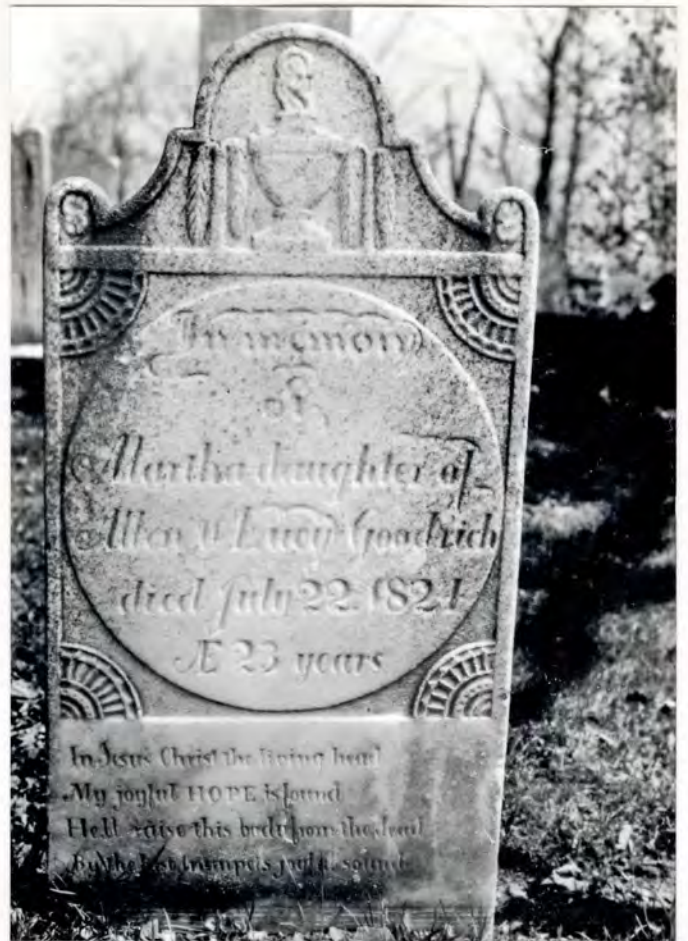 In memory
of
Martha daughter of
Allen & Lucy Goodrich
died July 22 1821
Æ 23 years
In Jesus Christ the living head
My joyful HOPE is found
He'll raise this body from the dead
By the last trumpets joyful sound